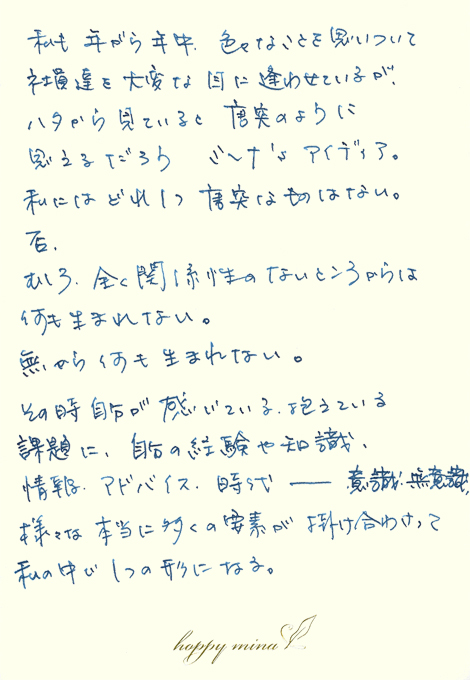 私も年がら年中、色々なことを思いついて
社員達を大変な目に逢わせているが、
ハタから見ていると唐突のように
思えるだろう どんなアイディア。
私にはどれ1つ唐突なものはない。
否、
むしろ、全く関係性のないところからは
何も生まれない。
無から何も生まれない。
その時自分が感じている、抱えている
課題に、自分の経験や知識、
情報、アドバイス、時代 ── 意識・無意識、
様々な本当に多くの要素が掛け合わさって
私の中で1つの形になる。
happy mina